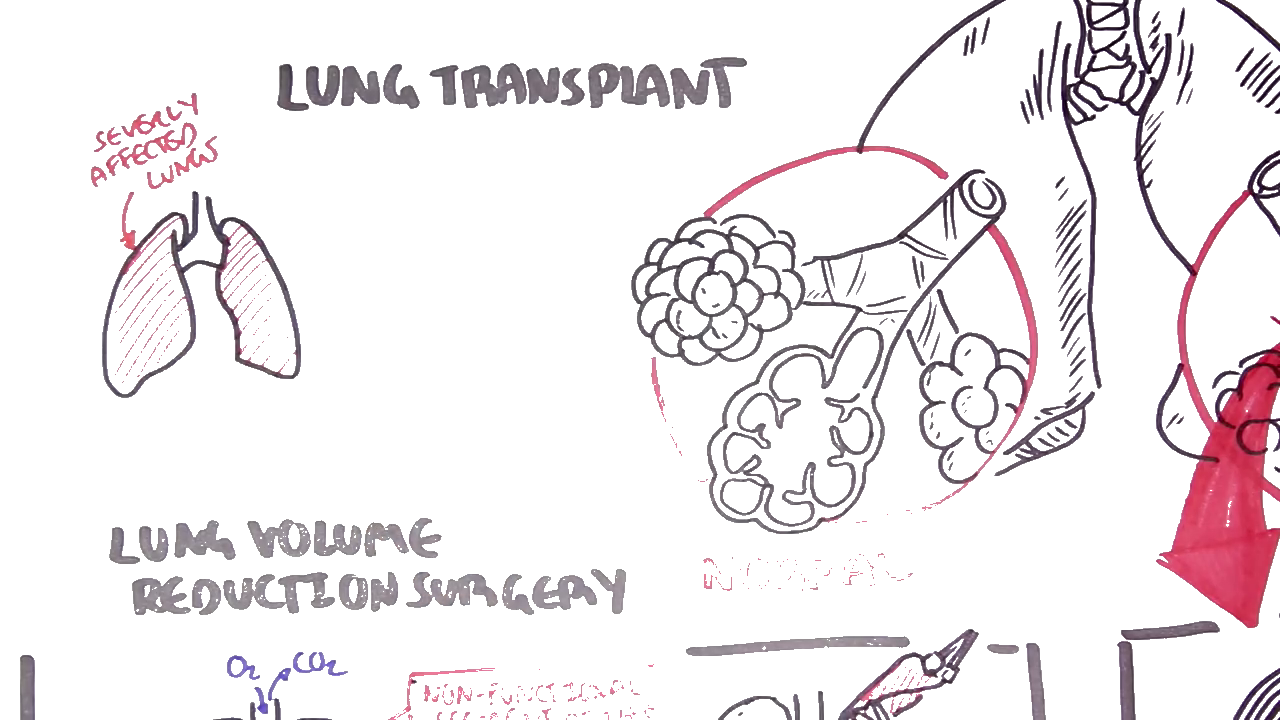 LUNG TRANSPLANT
SEVERLY
AFFECTED
LUNGS
LUNG VOLUME
REDUCTION SURGERY
NORMAL
O2
CO2
NON-FUNCTIONAL